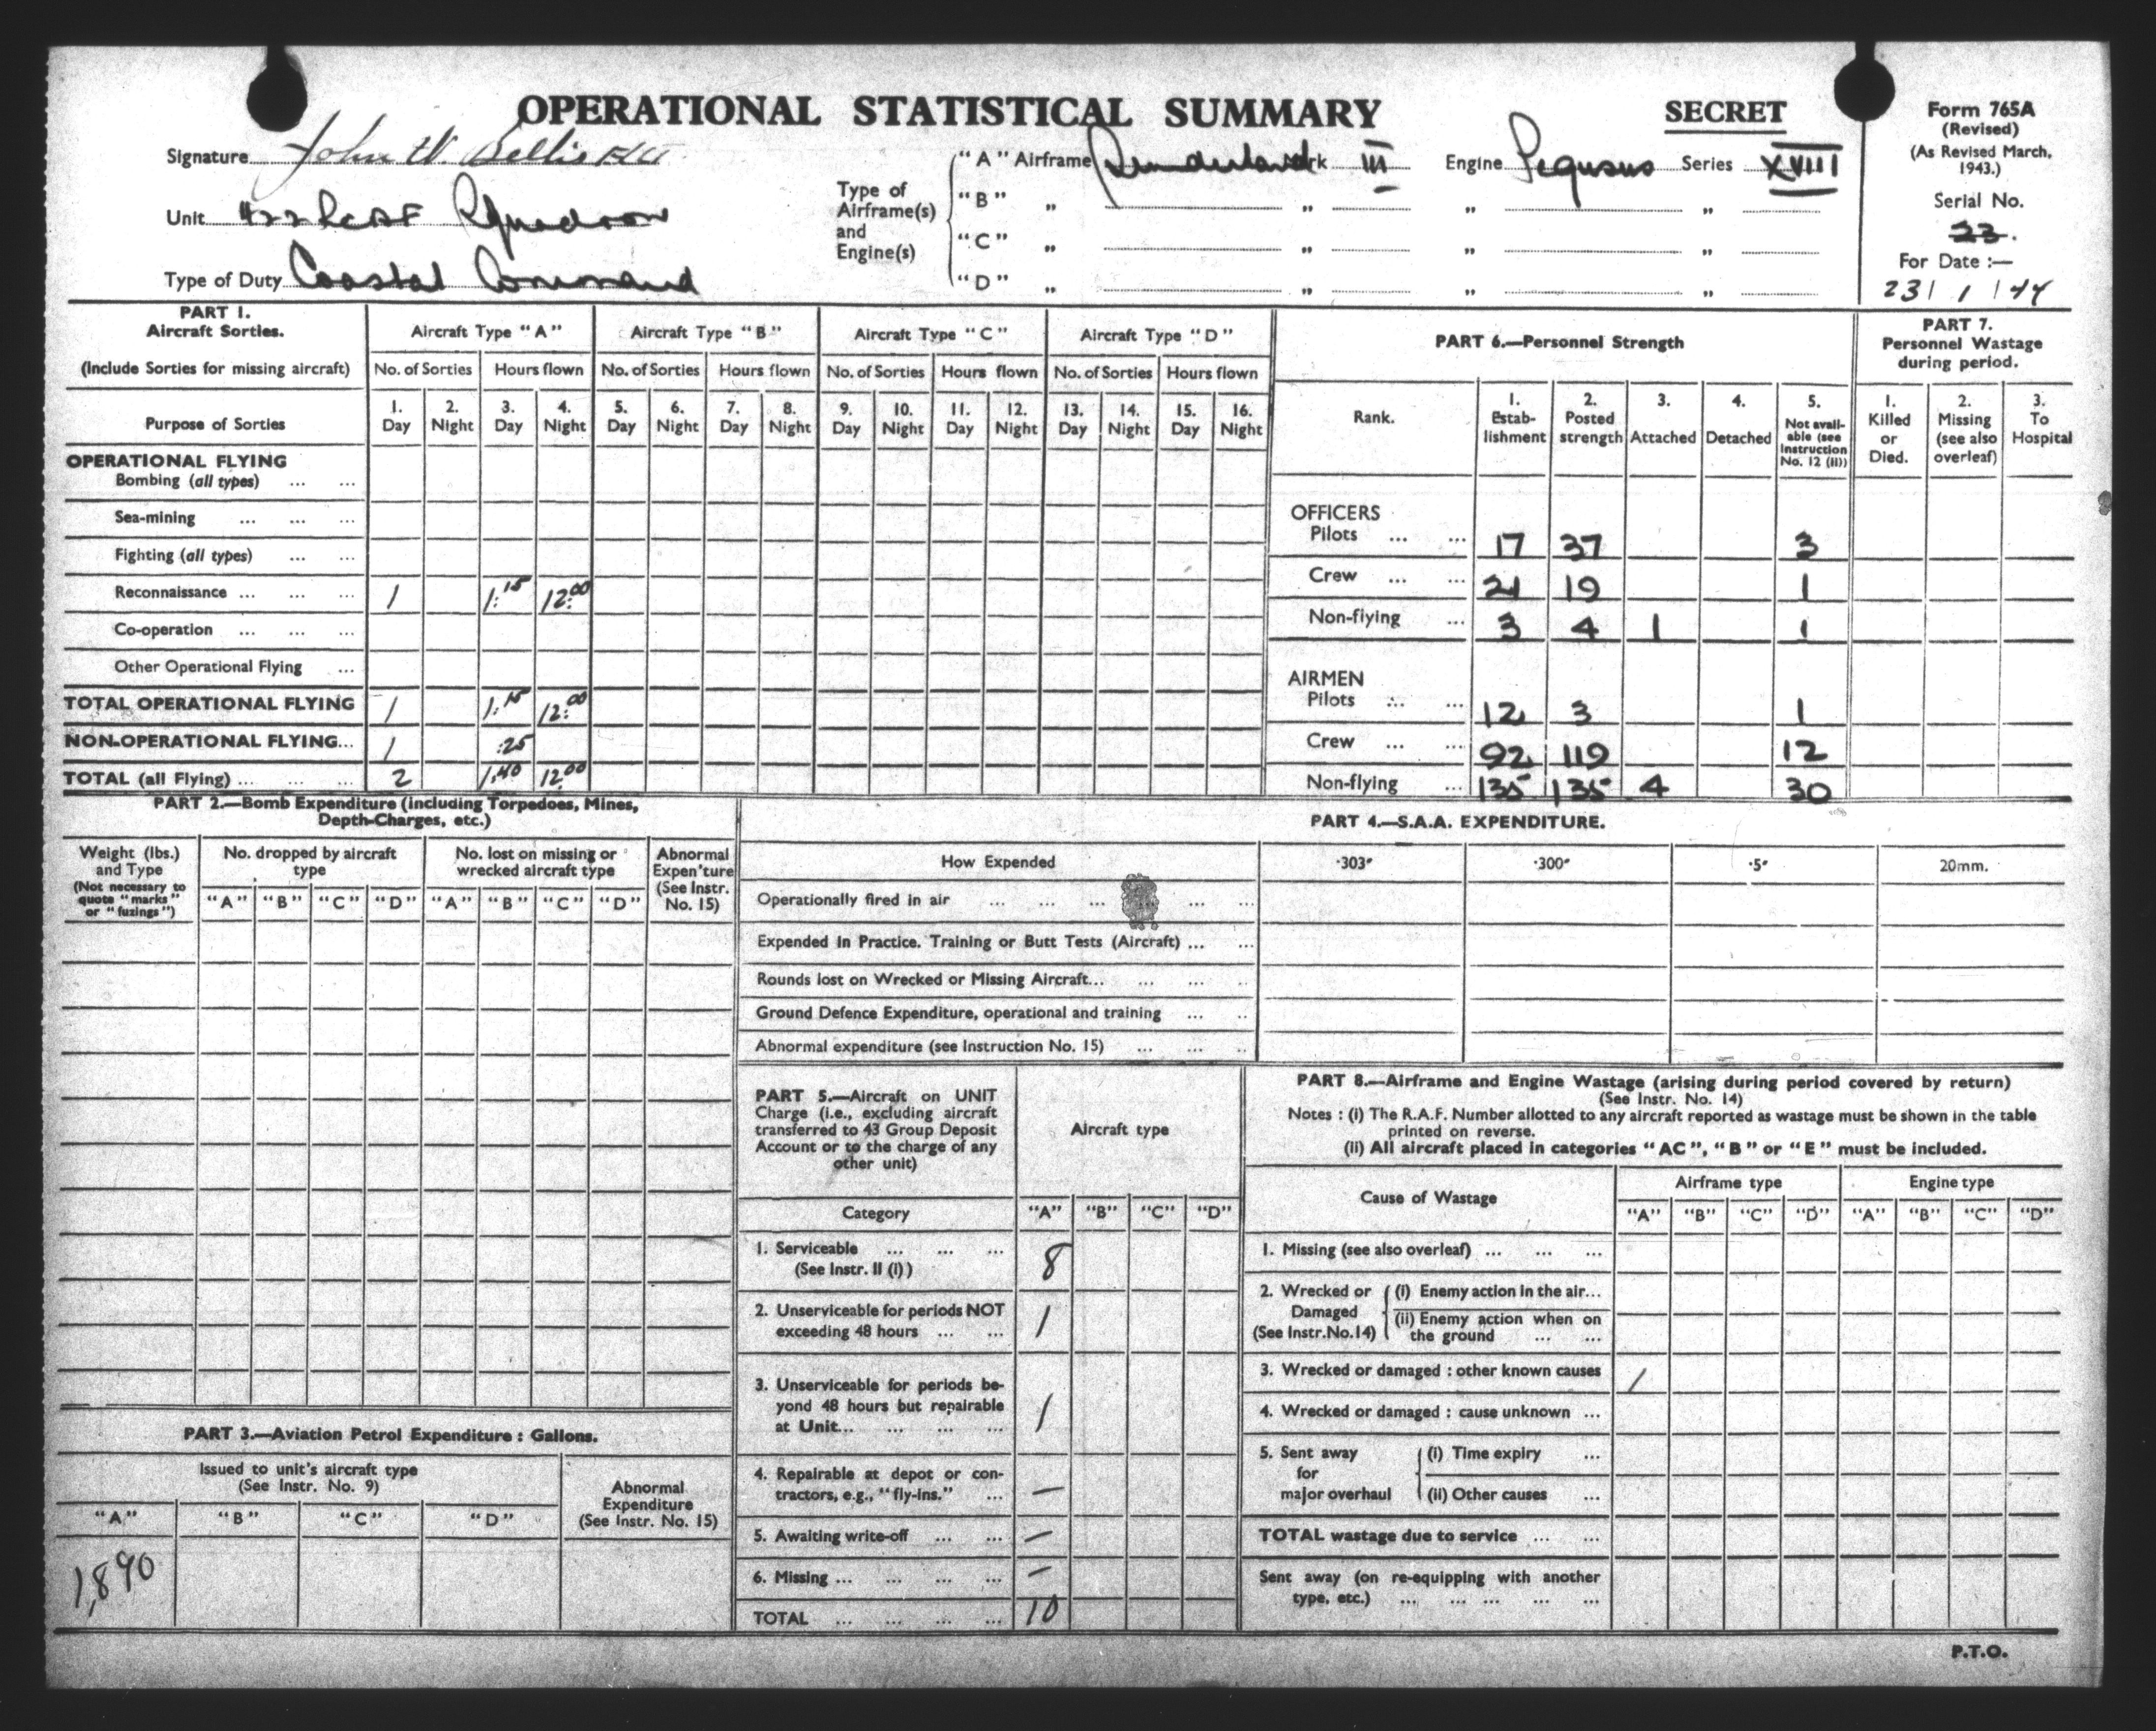 OPERATIONAL STATISTICAL SUMMARY
SECRET
Form 765A
(Revised)
(As Revised March,
1943.)
Serial No.
23.
For Date :—
23/1/44
Signature John W. Bellis F/Lt
Unit 422 RCAF Squadron
Type of Duty Coastal Command
Type of
Airframe(s)
and
Engine(s)
"A" Airframe Sunderland Mark III Engine Pegasus Series XVIII
"B" " " " "
"C" " " " "
"D" " " " "
PART 1.
Aircraft Sorties.
(Include Sorties for missing aircraft)
Aircraft Type "A" Aircraft Type "B" Aircraft Type "C" Aircraft Type "D"
No. of Sorties Hours flown No. of Sorties Hours flown No. of Sorties Hours flown No. of Sorties Hours flown
Purpose of Sorties
1. 2. 3. 4. 5. 6. 7. 8. 9. 10. 11. 12. 13. 14. 15. 16.
Day Night Day Night Day Night Day Night Day Night Day Night Day Night Day Night
OPERATIONAL FLYING
Bombing (all types) ... ...
Sea-mining ... ... ...
Fighting (all types) ... ...
Reconnaissance ... ... ... 1 1:15 12:00
Co-operation ... ... ...
Other Operational Flying ...
TOTAL OPERATIONAL FLYING 1 1:15 12:00
NON-OPERATIONAL FLYING... 1 :25
TOTAL (all Flying) ... ... ... 2 1:40 12:00
PART 6.—Personnel Strength
Rank.
1. Estab-lishment
2. Posted strength
3. Attached
4. Detached
5. Not avail-able (see Instruction No. 12 (ii))
OFFICERS
Pilots ... ... 17 37 3
Crew ... ... 21 19 1
Non-flying ... 3 4 1 1
AIRMEN
Pilots ... ... 12 3 1
Crew ... ... 92 119 12
Non-flying ... 135 135 4 30
PART 7.
Personnel Wastage
during period.
1. Killed or Died.
2. Missing (see also overleaf)
3. To Hospital
PART 2.—Bomb Expenditure (including Torpedoes, Mines,
Depth-Charges, etc.)
Weight (lbs.)
and Type
(Not necessary to
quote "marks"
or "fuzings")
No. dropped by aircraft
type
No. lost on missing or
wrecked aircraft type
Abnormal
Expen'ture
(See Instr.
No. 15)
"A" "B" "C" "D" "A" "B" "C" "D"
PART 3.—Aviation Petrol Expenditure : Gallons.
Issued to unit's aircraft type
(See Instr. No. 9)
Abnormal
Expenditure
(See Instr. No. 15)
"A" "B" "C" "D"
1,890
PART 4.—S.A.A. EXPENDITURE.
How Expended ·303" ·300" ·5" 20mm.
Operationally fired in air ... ... ... ... ... ...
Expended in Practice. Training or Butt Tests (Aircraft) ... ...
Rounds lost on Wrecked or Missing Aircraft... ... ... ..
Ground Defence Expenditure, operational and training ... ..
Abnormal expenditure (see Instruction No. 15) ... ... ..
PART 5.—Aircraft on UNIT
Charge (i.e., excluding aircraft
transferred to 43 Group Deposit
Account or to the charge of any
other unit)
Aircraft type
Category "A" "B" "C" "D"
1. Serviceable ... ... ...
(See Instr. II (i) ) 8
2. Unserviceable for periods NOT
exceeding 48 hours ... ... 1
3. Unserviceable for periods be-
yond 48 hours but repairable
at Unit... ... ... ... 1
4. Repairable at depot or con-
tractors, e.g., "fly-ins." ... —
5. Awaiting write-off ... ... —
6. Missing ... ... ... ... —
TOTAL ... ... ... ... 10
PART 8.—Airframe and Engine Wastage (arising during period covered by return)
(See Instr. No. 14)
Notes : (i) The R.A.F. Number allotted to any aircraft reported as wastage must be shown in the table
printed on reverse.
(ii) All aircraft placed in categories "AC", "B" or "E" must be included.
Cause of Wastage
Airframe type Engine type
"A" "B" "C" "D" "A" "B" "C" "D"
1. Missing (see also overleaf) ... ... ...
2. Wrecked or
Damaged
(See Instr.No.14)
(i) Enemy action in the air...
(ii) Enemy action when on
the ground ... ...
3. Wrecked or damaged : other known causes 1
4. Wrecked or damaged : cause unknown ...
5. Sent away
for
major overhaul
(i) Time expiry ...
(ii) Other causes ...
TOTAL wastage due to service ... ...
Sent away (on re-equipping with another
type, etc.) ... ... ... ... ...
P.T.O.